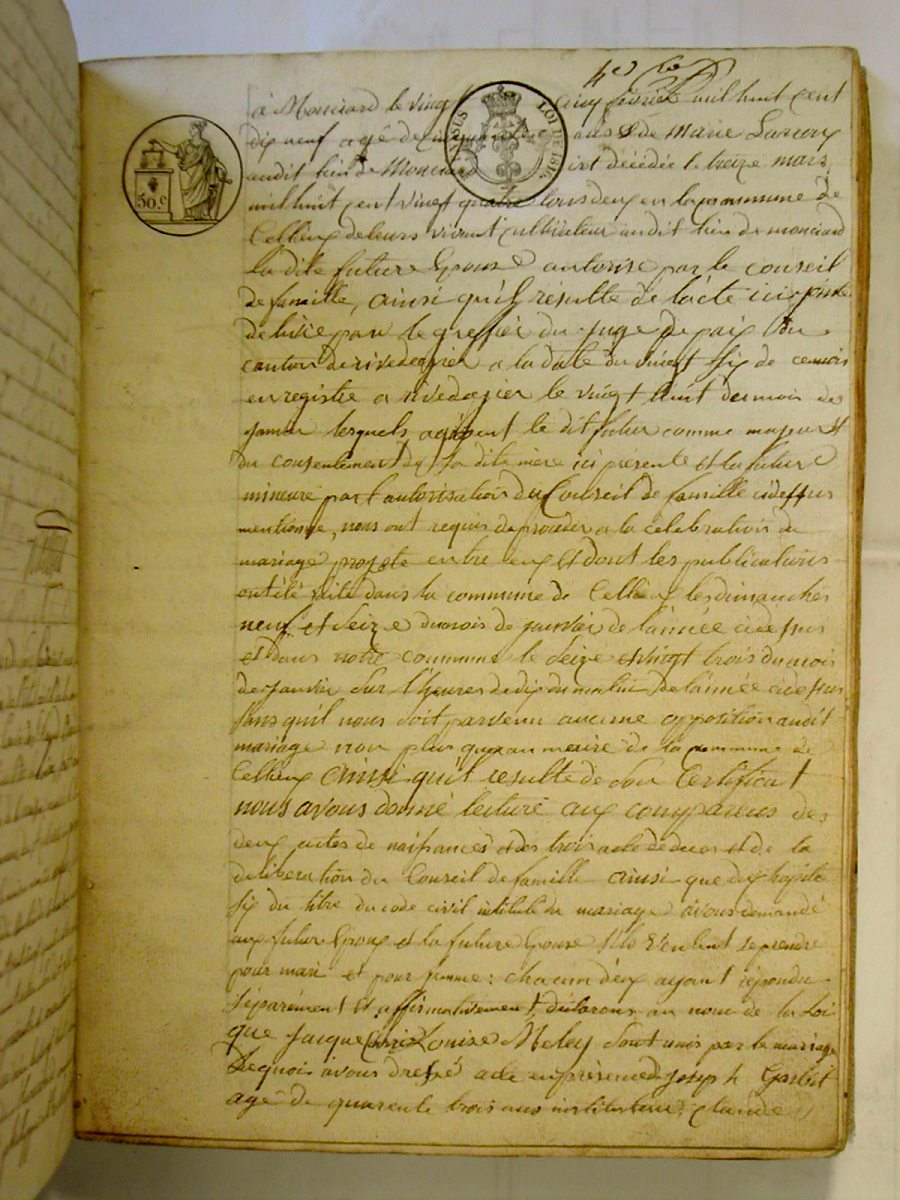 4e
à Monciard le vingt cinq février mil huit cent
dix neuf agé de cinquante ans & de Marie
audit lieu de Monciard est décédée le treize mars
mil huit cent vingt quatre tous deux en la commune de
Cellieu de leurs vivant cultivateur audit lieu de monciard
La dite future Epouse autorise par le conseil
de famille, ainsi qu'il résulte de l'acte ici joint
délivré par le greffier du juge de paix du
canton de rivedegier a la date du vingt six de ce mois
enregistré a rivedegier le vingt huit du mois de
janvier lesquels agissent le dit futur comme majeur et
du consentement de sa dite mère ici présente et la future
mineure par l'autorisation du Conseil de famille cidessus
mentionné, nous ont requis de procéder a la célébration du
mariage projeté entre eux et dont les publications
ont été faite dans la commune de Cellieu les dimanches
neuf et seize du mois de janvier de l'année cidessus
et dans notre commune le seize et vingt trois du mois
de janvier sur l'heures de dix du matin de l'année cidessus
sans qu'il nous soit parvenu aucune opposition audit
mariage non plus qu'au maire de la commune de
Cellieu ainsi quil resulte de son Certificat
nous avons donné lecture aux comparans des
deux actes de naissances et des trois acte de décès et de la
déliberation du Conseil de famille ainsi que du chapitre
six du titre du code civil intitulé du mariage avons demandé
aux futur Epoux et la future Epouse s'ils veulent se prendre
pour mari et pour femme : chacun d'eux ayant répondu
séparément et affirmativement, déclarons au nom de la Loi
que Jacque Louise Meley sont unis par le mariage
De quoi avons dressé acte en présence de joseph Garbit
agé de quarente trois ans instituteur, claude
50 C.
LOI DE 1816